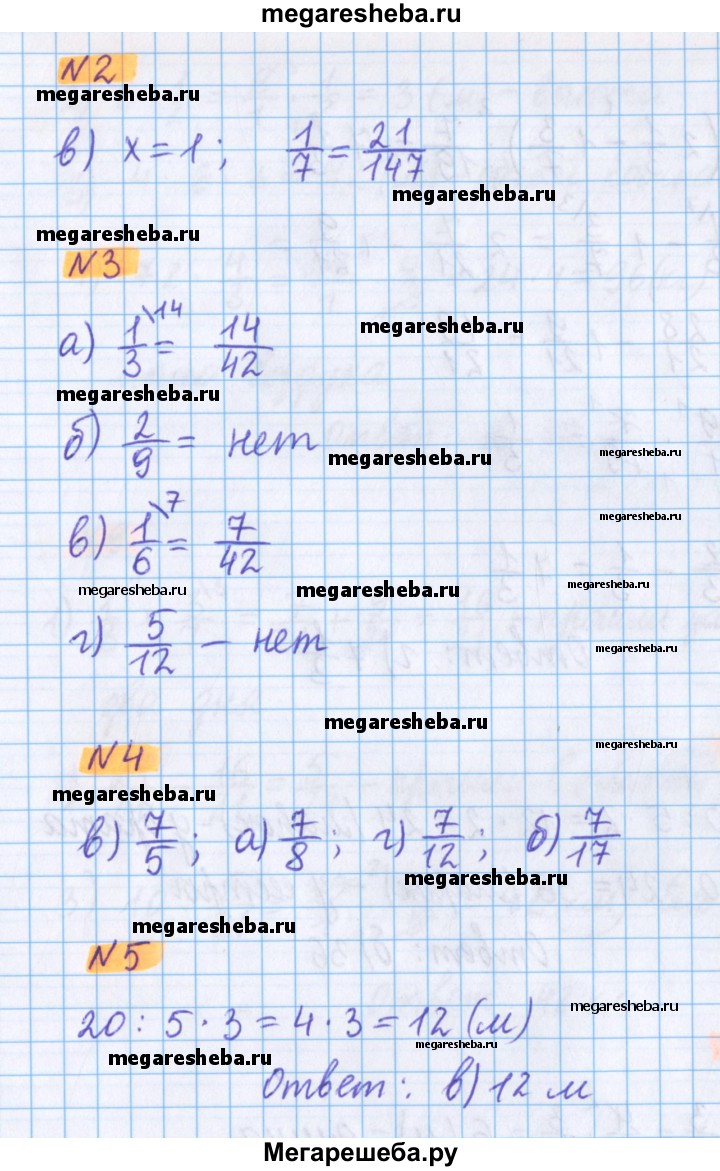 megaresheba.ru
N2
megaresheba.ru
в) x=1; 1/7 = 21/147
megaresheba.ru
megaresheba.ru
N3
а) 1/3 \14 = 14/42
megaresheba.ru
megaresheba.ru
б) 2/9 = нет
megaresheba.ru
megaresheba.ru
megaresheba.ru
в) 1/6 \7 = 7/42
megaresheba.ru
megaresheba.ru
megaresheba.ru
г) 5/12 — нет
megaresheba.ru
megaresheba.ru
N4
megaresheba.ru
megaresheba.ru
в) 7/5; а) 7/8; г) 7/12; б) 7/17
megaresheba.ru
megaresheba.ru
N5
megaresheba.ru
20 : 5 · 3 = 4 · 3 = 12 (м)
megaresheba.ru
megaresheba.ru
Ответ: в) 12 м
Мегарешеба.ру